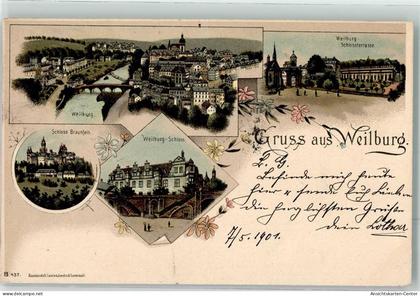 Weilburg
Weilburg
Schlossterrasse
Schloss Braunfels
Weilburg-Schloss
Gruss aus Weilburg.
L. G.
Befinde mich heute
hier u sende Euch Lieben
die herzlichsten Grüße
dein Lothar
7/5. 1901.
B 437.
Ansichtskarten-Center